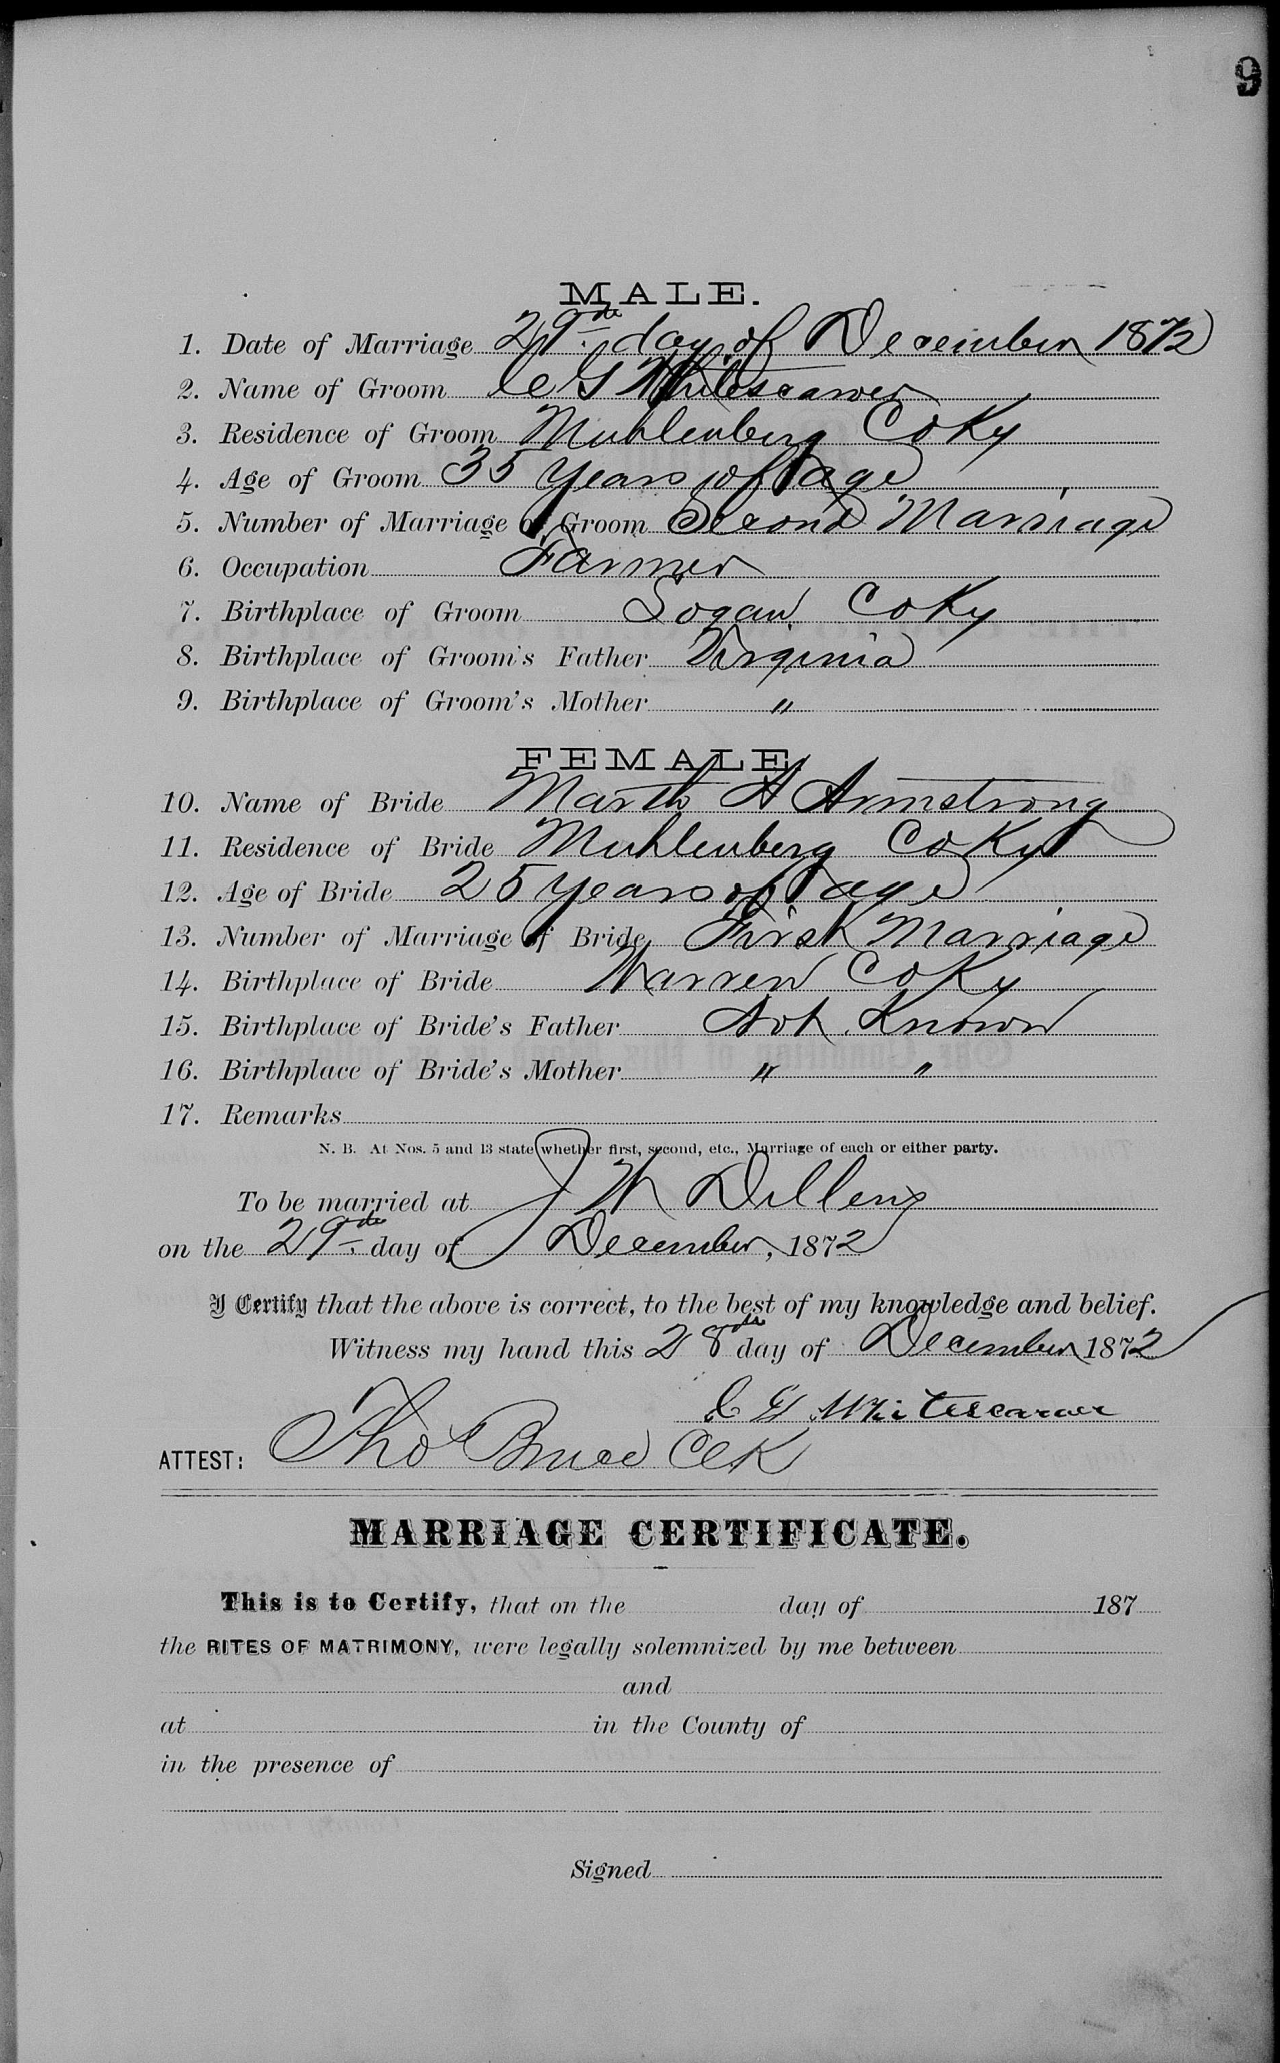 9
MALE.
1. Date of Marriage 29th day of December 1872
2. Name of Groom C G Whitescarver
3. Residence of Groom Muhlenberg Co Ky
4. Age of Groom 35 years of age
5. Number of Marriage of Groom Second Marriage
6. Occupation Farmer
7. Birthplace of Groom Logan Co Ky
8. Birthplace of Groom's Father Virginia
9. Birthplace of Groom's Mother "
FEMALE.
10. Name of Bride Marth A Armstrong
11. Residence of Bride Muhlenberg Co Ky
12. Age of Bride 25 years of age
13. Number of Marriage of Bride First Marriage
14. Birthplace of Bride Warren Co Ky
15. Birthplace of Bride's Father Not Known
16. Birthplace of Bride's Mother " "
17. Remarks
N. B. At Nos. 5 and 13 state whether first, second, etc., Marriage of each or either party.
To be married at J W
on the 29th day of December, 1872
I Certify that the above is correct, to the best of my knowledge and belief.
Witness my hand this 28th day of December 1872
C G Whitescarver
ATTEST: Tho Bruce Clk
MARRIAGE CERTIFICATE.
This is to Certify, that on the day of 187
the RITES OF MATRIMONY, were legally solemnized by me between
and
at in the County of
in the presence of
Signed